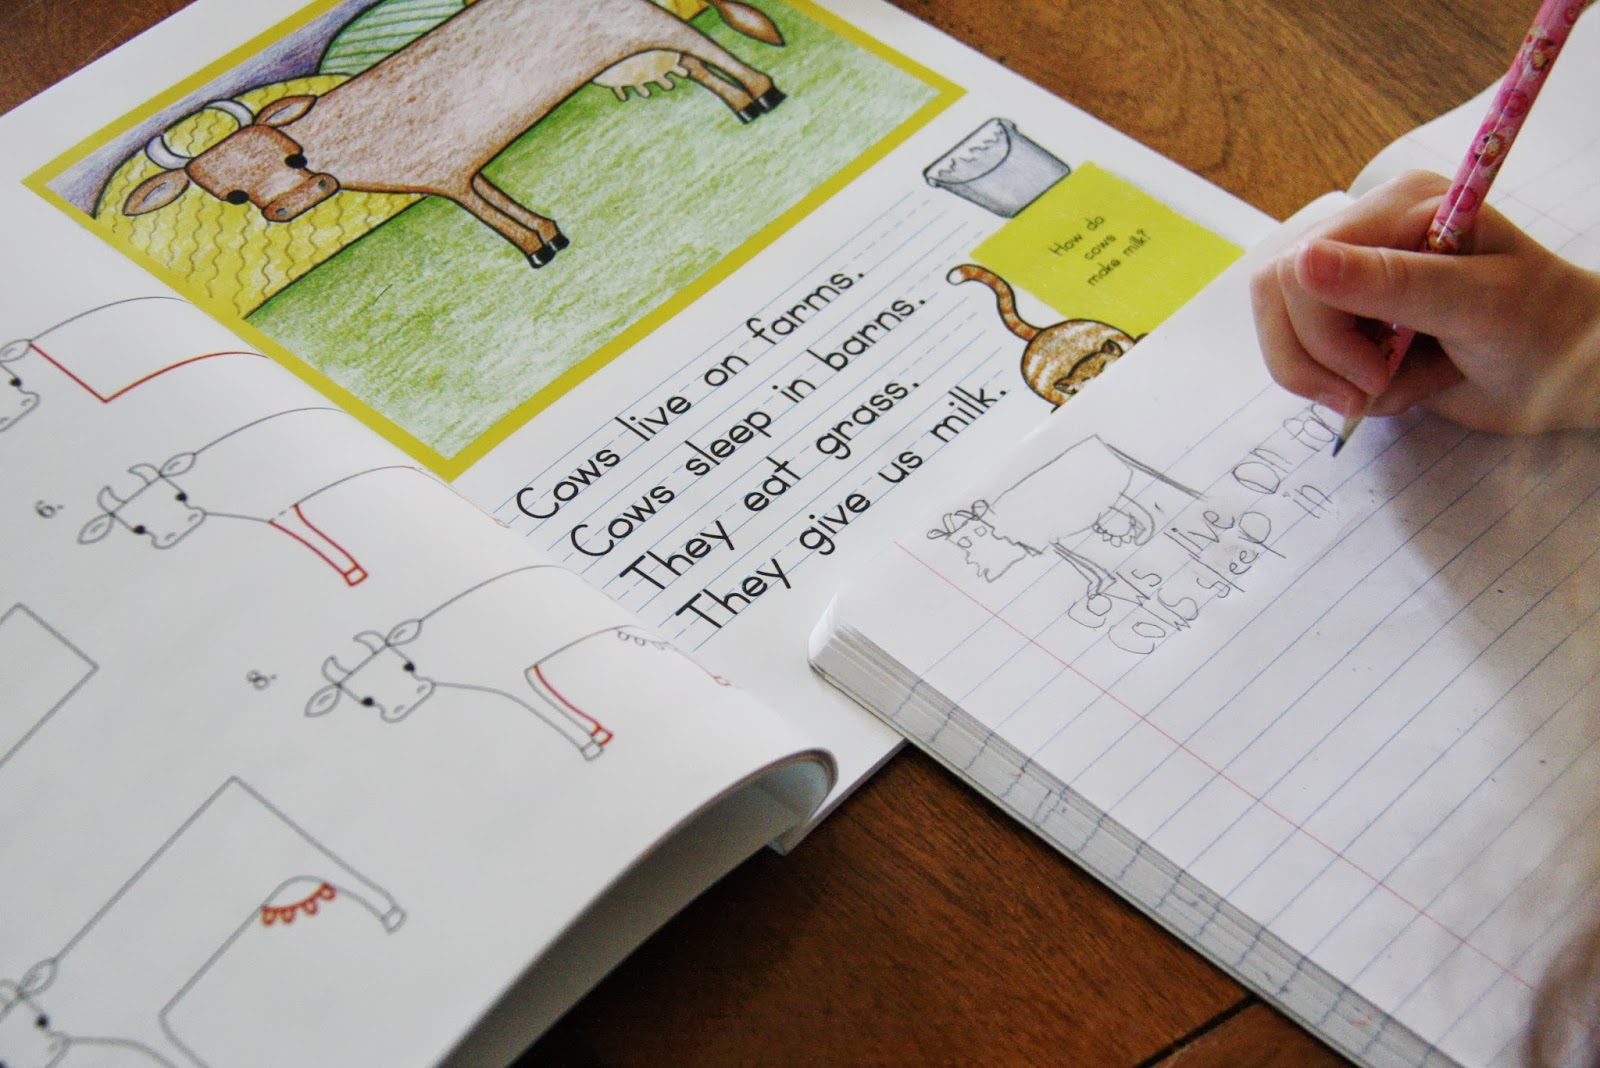 How do
cows
make milk?
Cows live on farms.
Cows sleep in barns.
They eat grass.
They give us milk.
6.
8.
cows live on far
cows sleep in